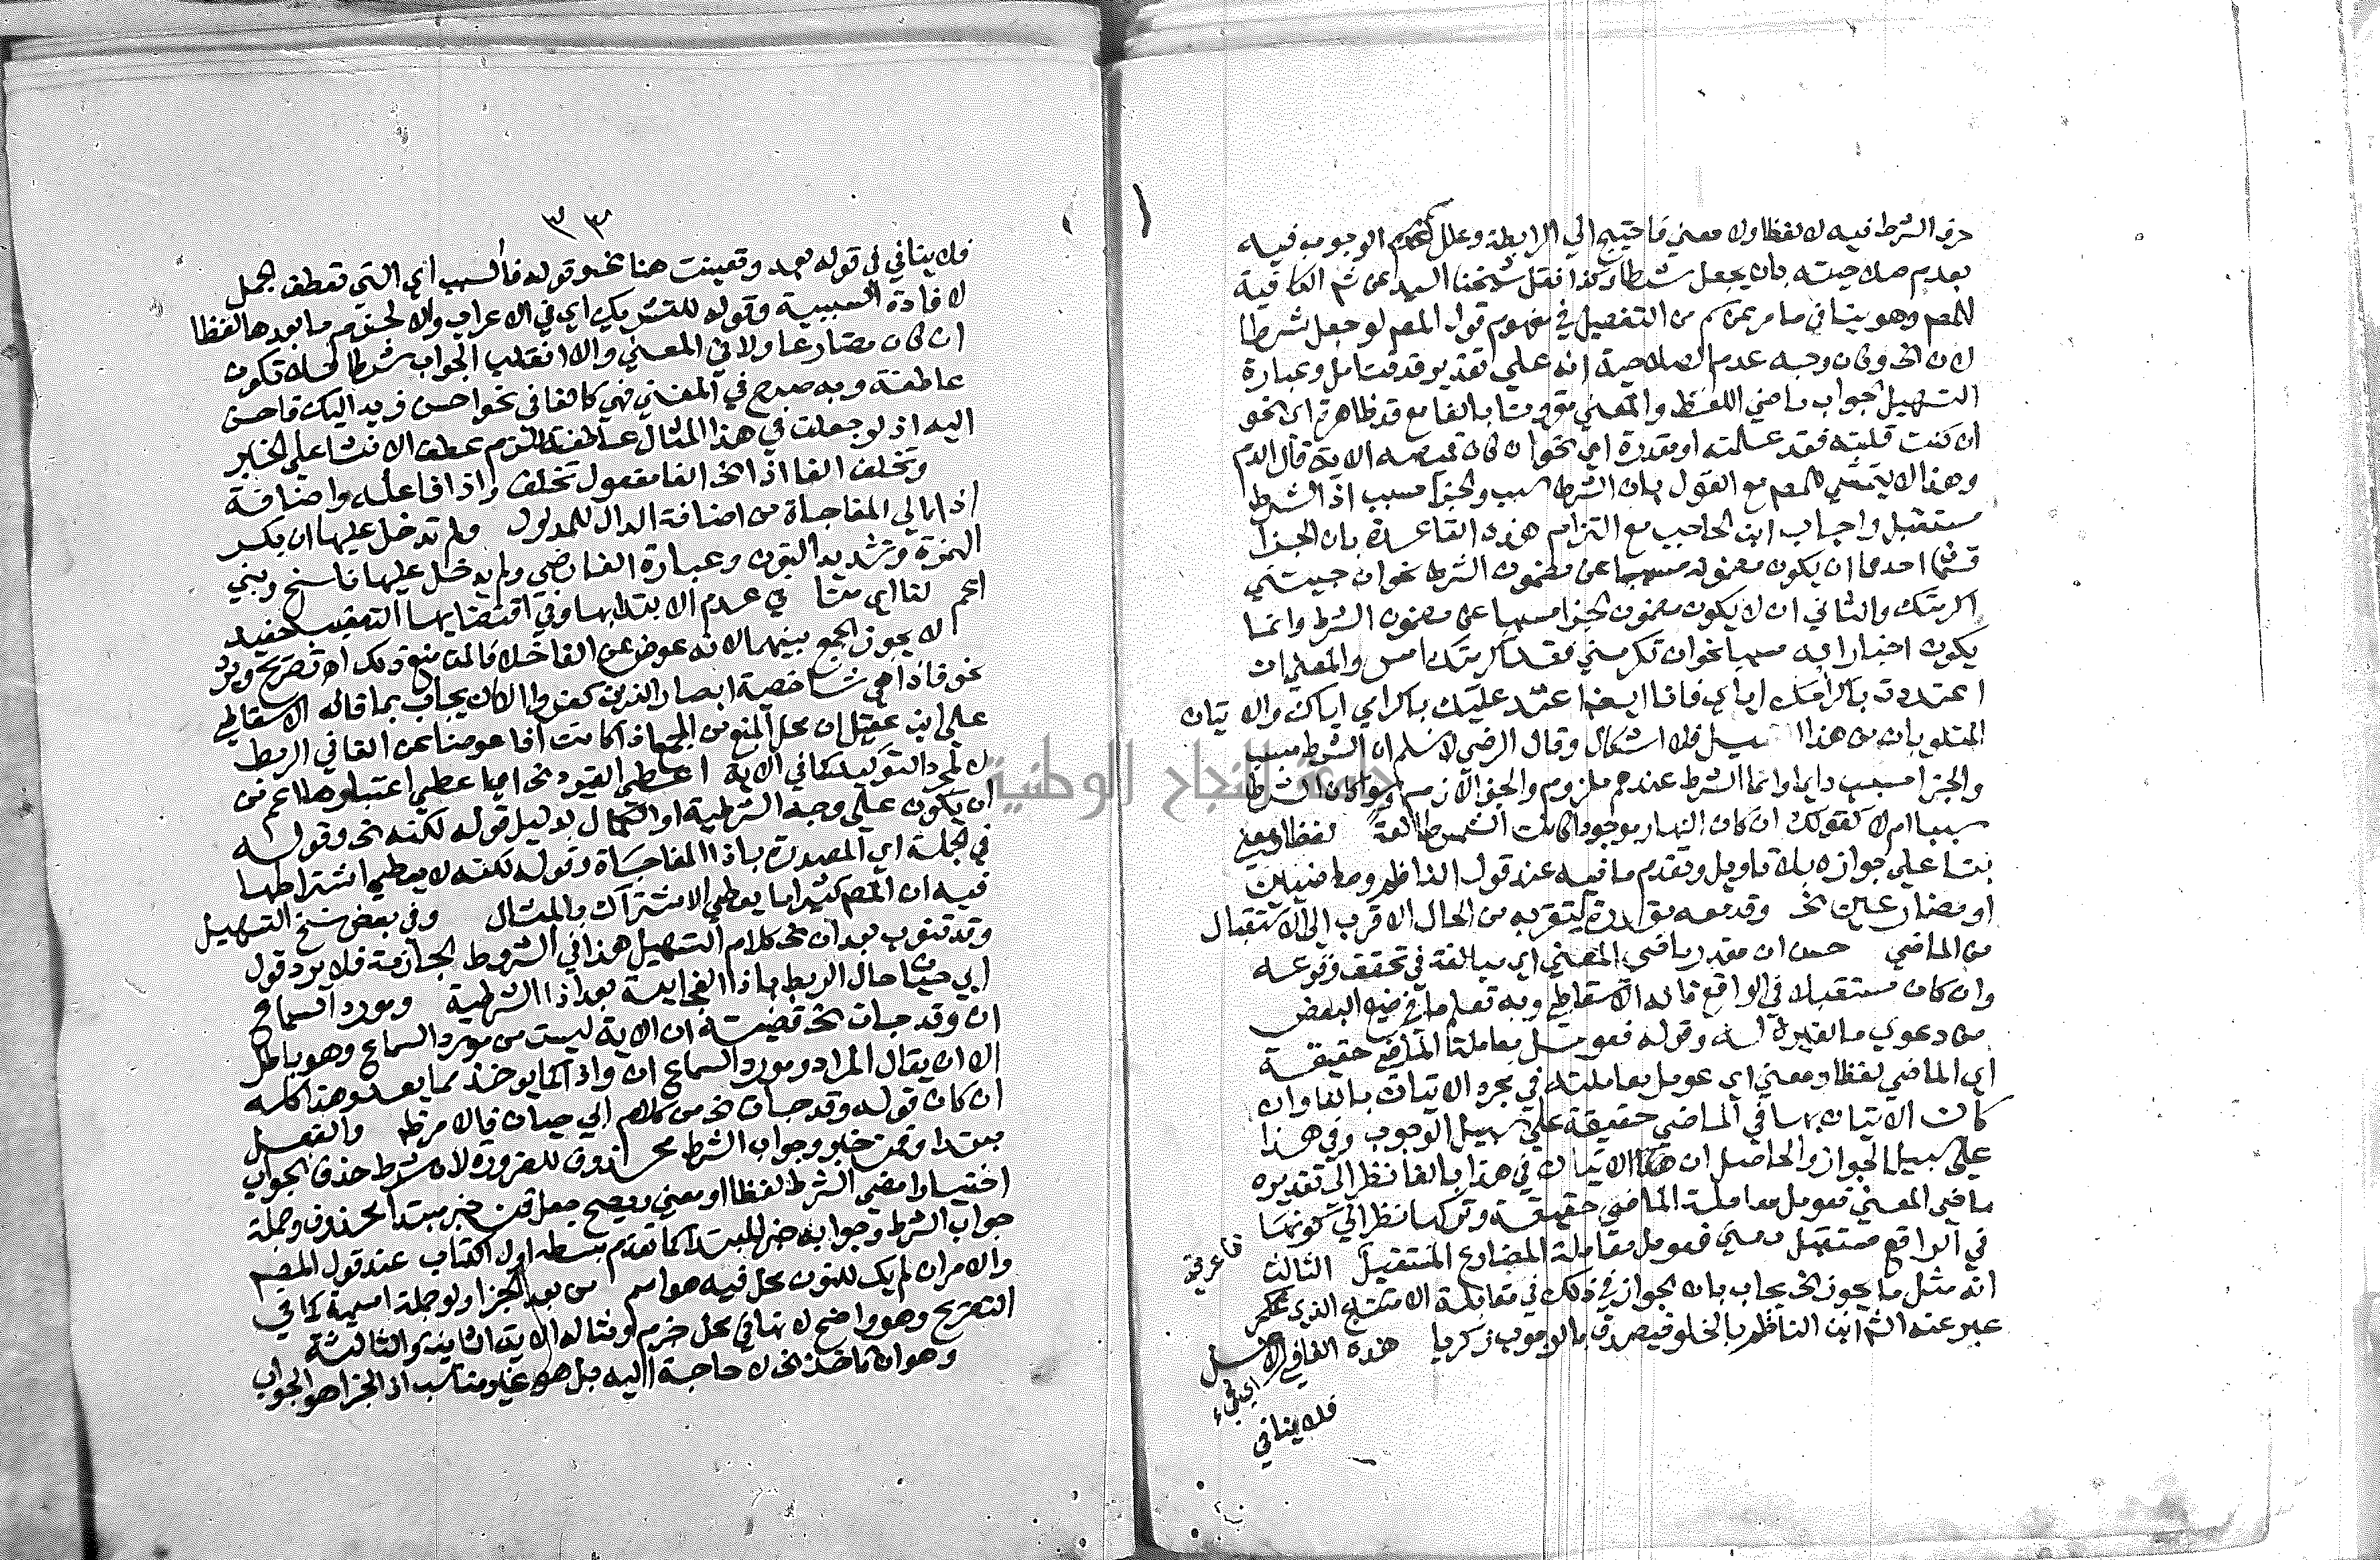 حرف الشرط فيه لا لفظا ولا معنى فاحتيج الي الرابطة وعلل عدم الوجوب فيه
بعدم صلاحيته بان يجعل شرطا وكذا نقل شيخنا السيد عن شم الكافية
للمصم وهو ينافي ما مر عن سم من التفصيل في مفهوم قول المصم لو جعل شرطا
لان الخ وكان وجه عدم الصلاحية انه علي تقدير قد فتامل وعبارة
التسهيل جواب ماضي اللفظ والمعني مقرونتا بالفا مع قد ظاهرة اي نحو
ان كنت قلته فقد علمته او مقدرة اي نحو ان كان قميصه الاية قال الدم
وهذا لا يتمشي للمصم مع القول بان الشرط سبب والجزا مسبب اذ الشرط
مستقبل واجاب ابن الحاجب مع التزام هذه القاعدة بان الجزا
قسمان احدهما ان يكون مضمونه مسببا عن مضمون الشرط نحو ان جيتني
اكرمتك والثاني ان لا يكون مضمون الجزا مسببا عن مضمون الشرط وانما
يكون اخبارا به مسببا نحو ان تكرمني فقد اكرمتك امس والمعني ان
اعتددت باكرامك اياي فانا ايضا اعتد عليك باكرامي اياك والايتان
المتلوبان من هذا القبيل فلا اشكال وقال الرضي لا نسلم ان الشرط سبب
والجزا مسبب دايما وانما الشرط عندهم ملزوم والجزا لازم سواكان الشرط
سببا ام لا كقولك ان كان النهار موجودا كانت الشمس طالعة لفظا ومعني
بنتا علي جوازه بلا تاويل وتقدم ما فيه عند قول الناظم وماضيين
او مضارعين الخ وقد معه مقدرة لتقربه من الحال الاقرب الي الاستقبال
من الماضي حسن ان مقدر ماضي المعني اي مبالغة في تحقق وقوعه
وان كان مستقبلا في الواقع قاله الاسقاطي وبه تعلم ما في صنيع البعض
من دعوي مالغيره له وقوله فعومل معاملة الماضي حقيقة
اي الماضي لفظا ومعني اي عومل معاملته في مجرد الاتيان بالفا وان
كان الاتيان بها في الماضي حقيقة علي سبيل الوجوب وفي هذا
علي سبيل الجواز والحاصل ان الاتيان في هذا بالفا نظرا الي تقديره
ماضي المعني فعومل معاملة الماضي حقيقة وتركها نظرا الي كونها
في الواقع مستقبل معني فعومل معاملة المضارع المستقبل الثالث
فاعرفه
انه مثل ما يجوز الخ يجاب بان الجواز في ذلك في مقابلة الامتناع الذي
عبر عنه الشم ابن الناظم بالخلو فيصدق بالوجوب زكريا هذه الفا في الاصل
فلا ينافي

٣٣
فلا ينافي في قوله بعد وتعينت هنا الخ وقوله فا السبب اي التي تعطف الجمل
لافادة السببية وقوله للتشريك اي في الاعراب والا لجزم ما بعدها لفظا
ان كان مضارعا ولا في المعني والا انقلب الجواب شرطا فلا تكون
عاطفة وبه صرح في المغني فهي كالفا في نحو احسن زيد اليك فاحسن
اليه اذ لو جعلت في هذا المثال عاطفة للزم عطف الانشا علي الخبر
وتخلف الفا اذا الخ الفا مفعول تخلف واذا فاعله واضافة
اذا الي المفاجاة من اضافة الدال للمدلول ولم تدخل عليها ان بكسر
الهمزة وتشديد النون وعبارة الفارضي ولم يدخل عليها ناسخ وبني
اعم لنا اي معتا في عدم الابتدا بها وفي اقتضايها التعقيب حفيد
لا يجوز الجمع بينهما لانه عوض عن الفا خلافا لمن منع ذلك اه تصريح ويرد
نحو فاذا هي شاخصة ابصار الذين كفروا الا ان يجاب بما قاله الاسقاطي
علي ابن عقيل ان محل المنع من الجمع اذا كانت اذا عوضا عن الفا في الربط
لا لمجرد التوكيد كما في الاية اعطي القيود الخ اي اعطي اعتبارها اعم من
ان يكون علي وجه الشرطية او الكمال بدليل قوله لكنه الخ وقوله
في الجملة اي المصدرة باذا المفاجاة وقوله لكنه لا يعطي اشتراطها
فيه ان المصم كثيرا ما يعطي الاشتراك بالمثال وفي بعض نسخ التسهيل
وقد تنوب بعد ان الخ كلام التسهيل هذا في الشروط الجازمة فلا يرد قول
ابي حيان حال الربط باذا الفجايية بعد اذا الشرطية ومورد السماع
ان وقد جات الخ قضيته ان الاية ليست من مورد السماع وهو باطل
الا ان يقال المراد ومورد السماع ان واذا كما يوخذ مما بعد وهذا كله
ان كان قوله وقد جات الخ من كلام ابي حيان قالامر ظم والفعل
مبتدا وقمن خبر وجواب الشرط محذوف للضرورة لان شرط حذف الجواب
اختيارا مضي الشرط لفظا او معني ويصح جعل قمن خبر مبتدا محذوف وجملة
جواب الشرط وجوابه خبر المبتدا كما تقدم بسطه اول الكتاب عند قول المصم
والامر ان لم يك للنون محل فيه هو اسم من بعد الجزا ولو جملة اسمية كما في
التصريح وهو واضح لانها في محل جزم ومثاله الاية الثانية والثالثة
وهو ان ما خذ الخ لا حاجة اليه بل هو غير مناسب اذ الجزا هو الجواب
جامعة النجاح الوطنية